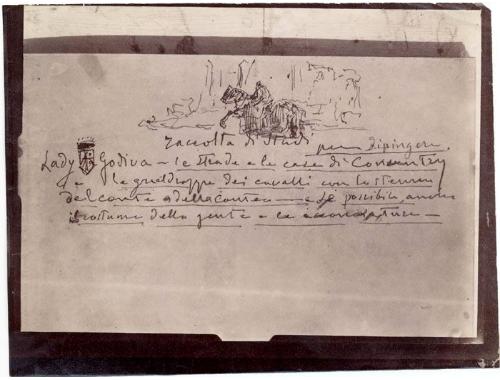 raccolta di studi per dipingere
Lady Godiva – le strade e le case di Conventry
e le gualdrappe dei cavalli con lo stemma
del conte e della contea – e se possibile, anche
il costume della gente e le